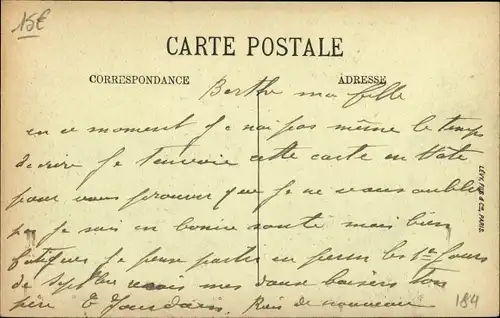 15€
CARTE POSTALE
CORRESPONDANCE ADRESSE
Berthe ma fille
en ce moment je nai pas même le temps
decrire je tenvoie cette carte en hate
pour vous prouver que je ne vous oublie
pas je suis en bonne santé mais bien
fatiguer je pense partir en perm les 1er jours
de Septbre mes doux baisers ton
père E Rien de nouveau
LÉVY FILS & Cie, PARIS
184